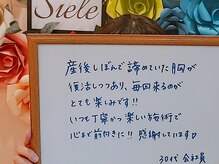 Siele
産後しぼんで諦めていた胸が
復活しつつあり、毎回来るのが
とても楽しみです!!
いつも丁寧かつ楽しい施術で
心まで前向きに!! 感謝しています♡
30代 会社員